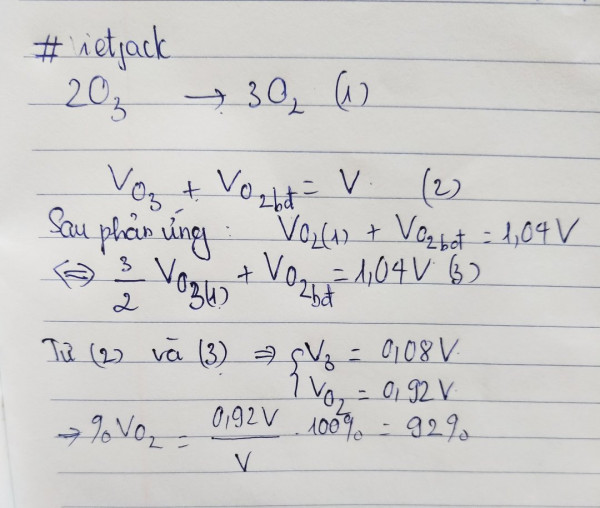 # Vietjack
2O₃ → 3O₂ (1)
V_O₃ + V_O₂bđ = V (2)
Sau phản ứng: V_O₂(1) + V_O₂bđ = 1,04V
⇔ 3/2 V_O₃(1) + V_O₂bđ = 1,04V (3)
Từ (2) và (3) ⇒ { V₃ = 0,08V
V_O₂ = 0,92V
→ %V_O₂ = 0,92V/V . 100% = 92%